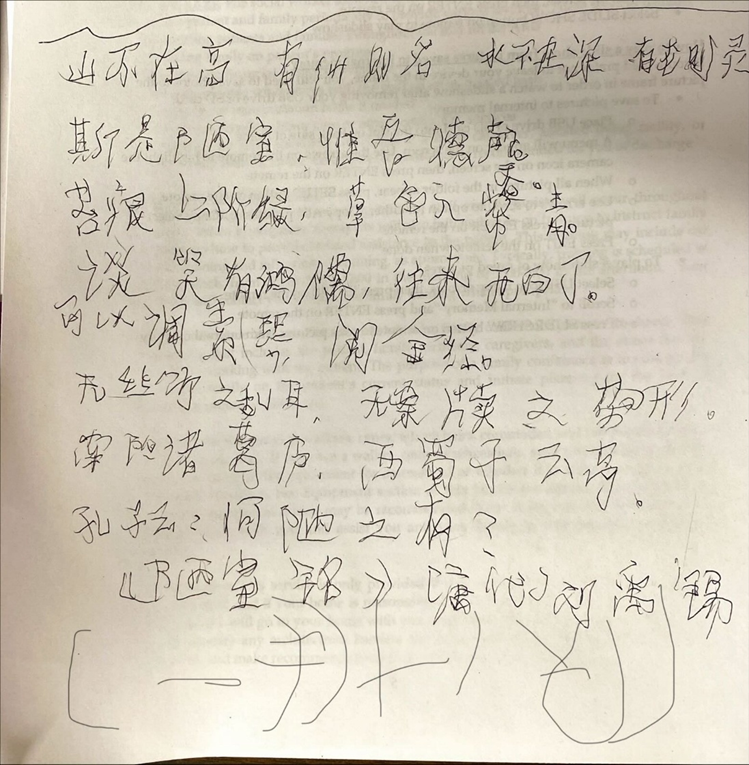 山不在高 有仙则名 水不在深 有龙则灵
斯是陋室,惟吾德馨。
苔痕上阶绿,草色入帘青。
谈笑有鸿儒,往来无白丁。
可以调素琴,阅金经。
无丝竹之乱耳,无案牍之劳形。
南阳诸葛庐,西蜀子云亭。
孔子云:何陋之有?
《陋室铭》唐代 刘禹锡